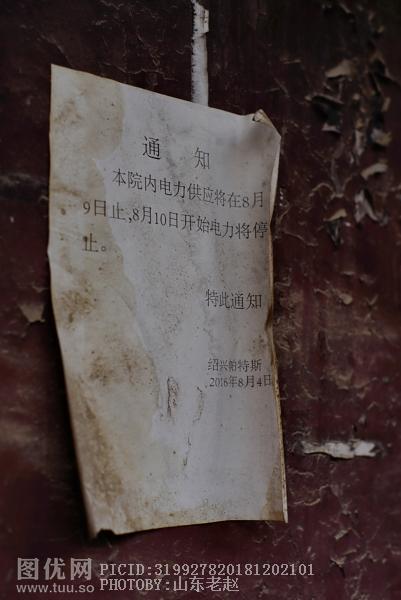 通 知
本院内电力供应将在8月
9日止,8月10日开始电力将停
止。
特此通知
绍兴帕特斯
2016年8月4日
图优网 PICID:319927820181202101
www.tuu.so PHOTOBY:山东老赵